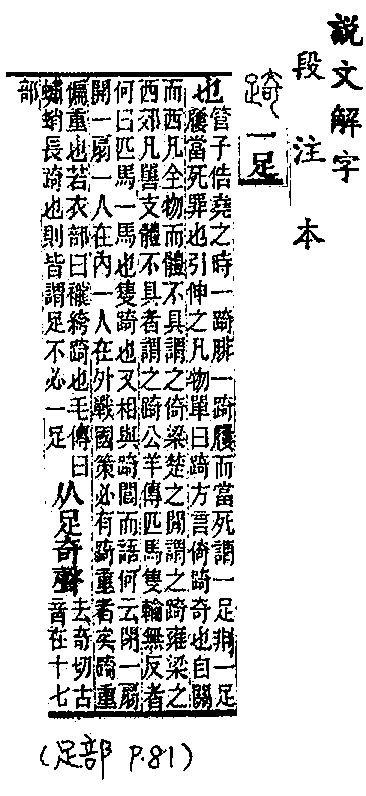 說文解字
段注本
踦
一足
也管子佶堯之時一踦腓一踦屨而當死謂一足剕一足
屨當死罪也引伸之凡物單曰踦方言倚踦奇也自關
而西凡全物而體不具謂之倚梁楚之閒謂之踦雍梁之
西郊凡嘼支體不具者謂之踦公羊傳匹馬隻輪無反者
何曰匹馬一馬也隻踦也又相與踦閭而語何云閉一扇
開一扇一人在內一人在外戰國策必有踦重者矣踦重
偏重也若衣部曰襱絝踦也毛傳曰
蠨蛸長踦也則皆謂足不必一足 从足奇聲 去奇切古
音在十七
部
(足部 P.81)